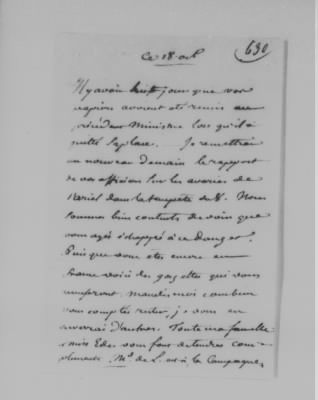 630
Ce 18 oct
Il y avoit huit jour que vos
papiers avoient été remis au
précédent Ministre lors qu'il a
quitté sa place. Je remettrai
au nouveau demain le rapport
de vos officiers sur les avaries de
dans la tempête du Nous
sommes bien contents de voir que
vous ayés échappé à ce danger.
Puis que vous etes encore en
voici des gazettes qui vous
mandés moi combien
vous comptés rester, je vous en
enverrai d'autres. Toute ma famille
& miss Edes vous font de tendres com-
pliments. Md de L. est à la Campagne,